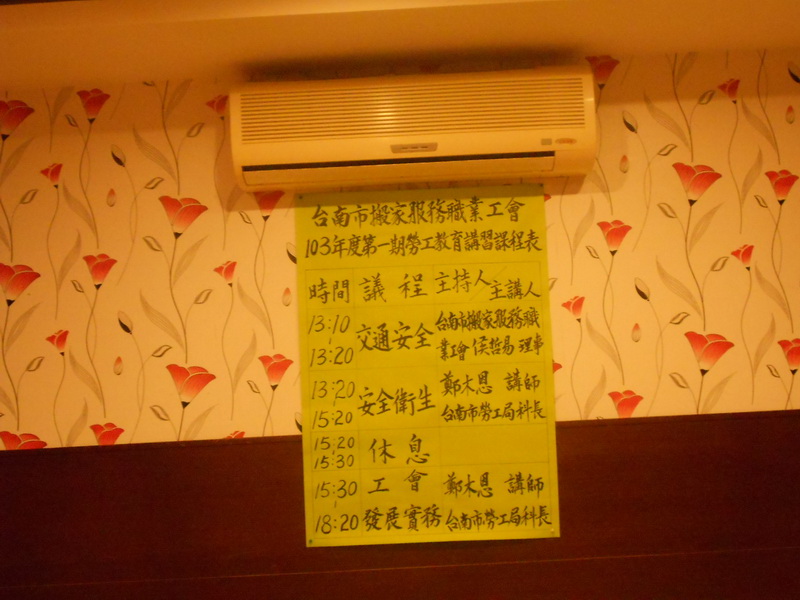 台南市搬家服務職業工會
103年度第一期勞工教育講習課程表
時間 議程 主持人/主講人
13:10
|
13:20 交通安全 台南市搬家服務職
業工會 侯哲易 理事
13:20
|
15:20 安全衛生 鄭木恩 講師
台南市勞工局科長
15:20
|
15:30 休息
15:30
|
18:20 工會
發展實務 鄭木恩 講師
台南市勞工局科長